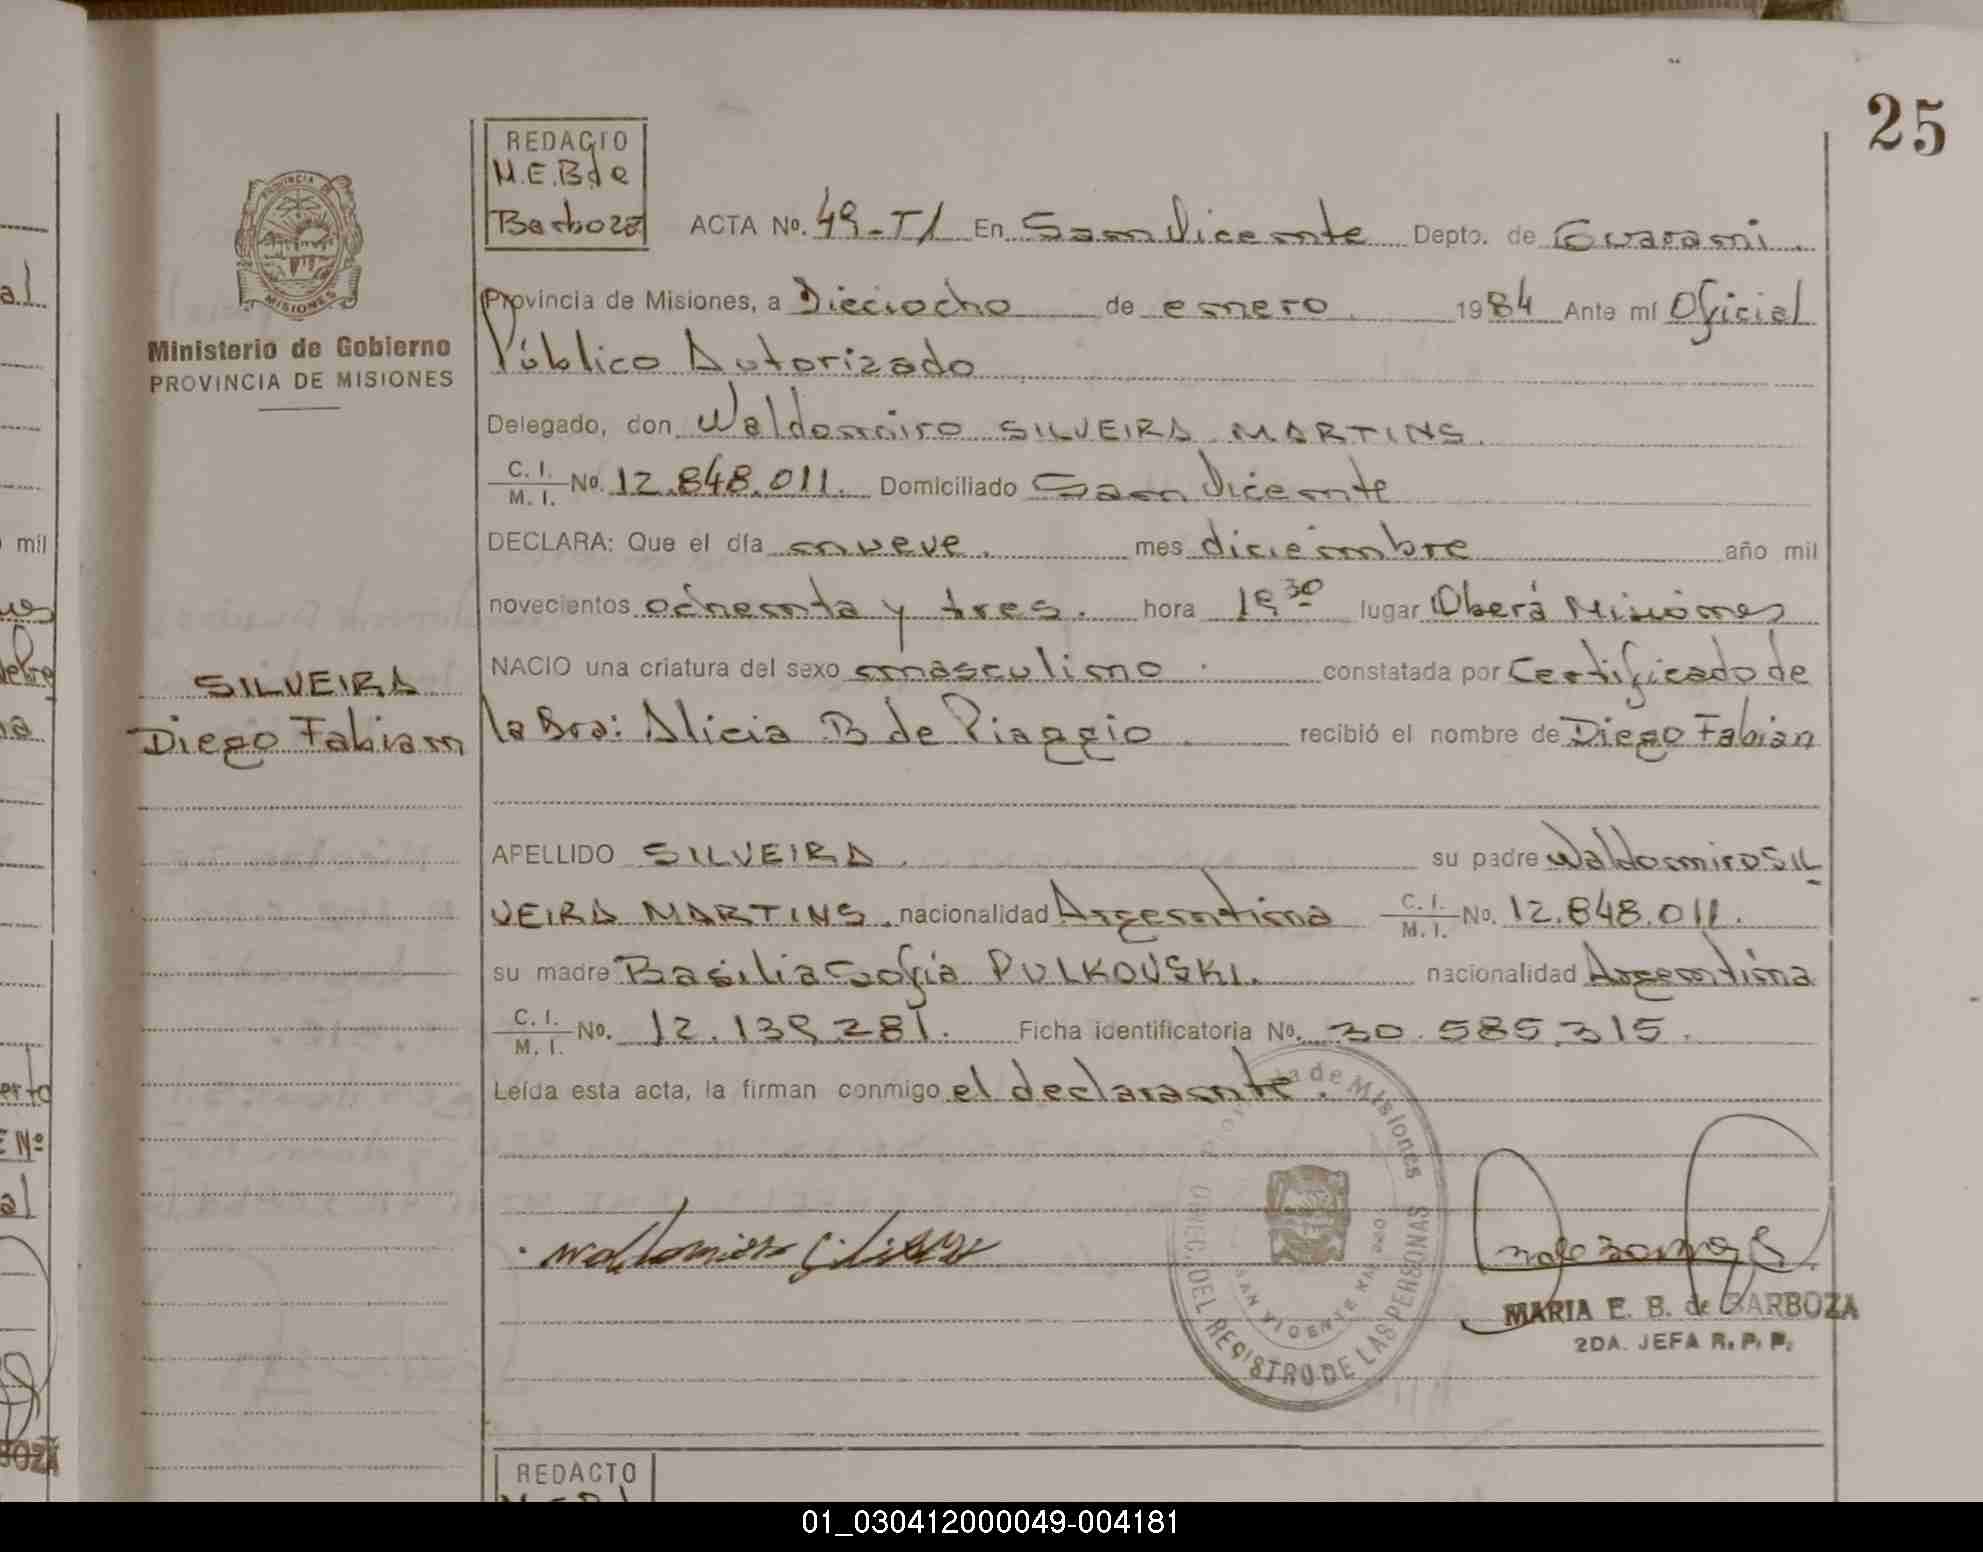 25
REDACTO
M.E.B de
Barboza
ACTA No. 49-T/ En San Vicente Depto. de Guaraní
PROVINCIA DE
MISIONES
Ministerio de Gobierno
PROVINCIA DE MISIONES
Provincia de Misiones, a Dieciocho de enero 1984 Ante mí Oficial
Público Autorizado
Delegado, don Waldomiro SILVEIRA MARTINS.
C. I. / M. I. No. 12.848.011. Domiciliado San Vicente
DECLARA: Que el día nueve. mes diciembre año mil
novecientos ochenta y tres. hora 19 30 lugar Oberá Misiones
NACIO una criatura del sexo masculino constatada por Certificado de
la Sra: Alicia B de Piaggio recibió el nombre de Diego Fabián
SILVEIRA
Diego Fabian
APELLIDO SILVEIRA. su padre Waldomiro SIL
VEIRA MARTINS. nacionalidad Argentina C. I. / M. I. No. 12.848.011.
su madre Basilia Sofía PULKOVSKI. nacionalidad Argentina
C. I. / M. I. No. 12.139.281. Ficha identificatoria No. 30.585.315.
Leída esta acta, la firman conmigo el declarante.
Provincia de Misiones
DEL REGISTRO DE LAS PERSONAS
SAN VICENTE
Waldomiro Silveira
MARIA E. B. de BARBOZA
2DA. JEFA R. P. P.
REDACTO
mil
al
01_030412000049-004181